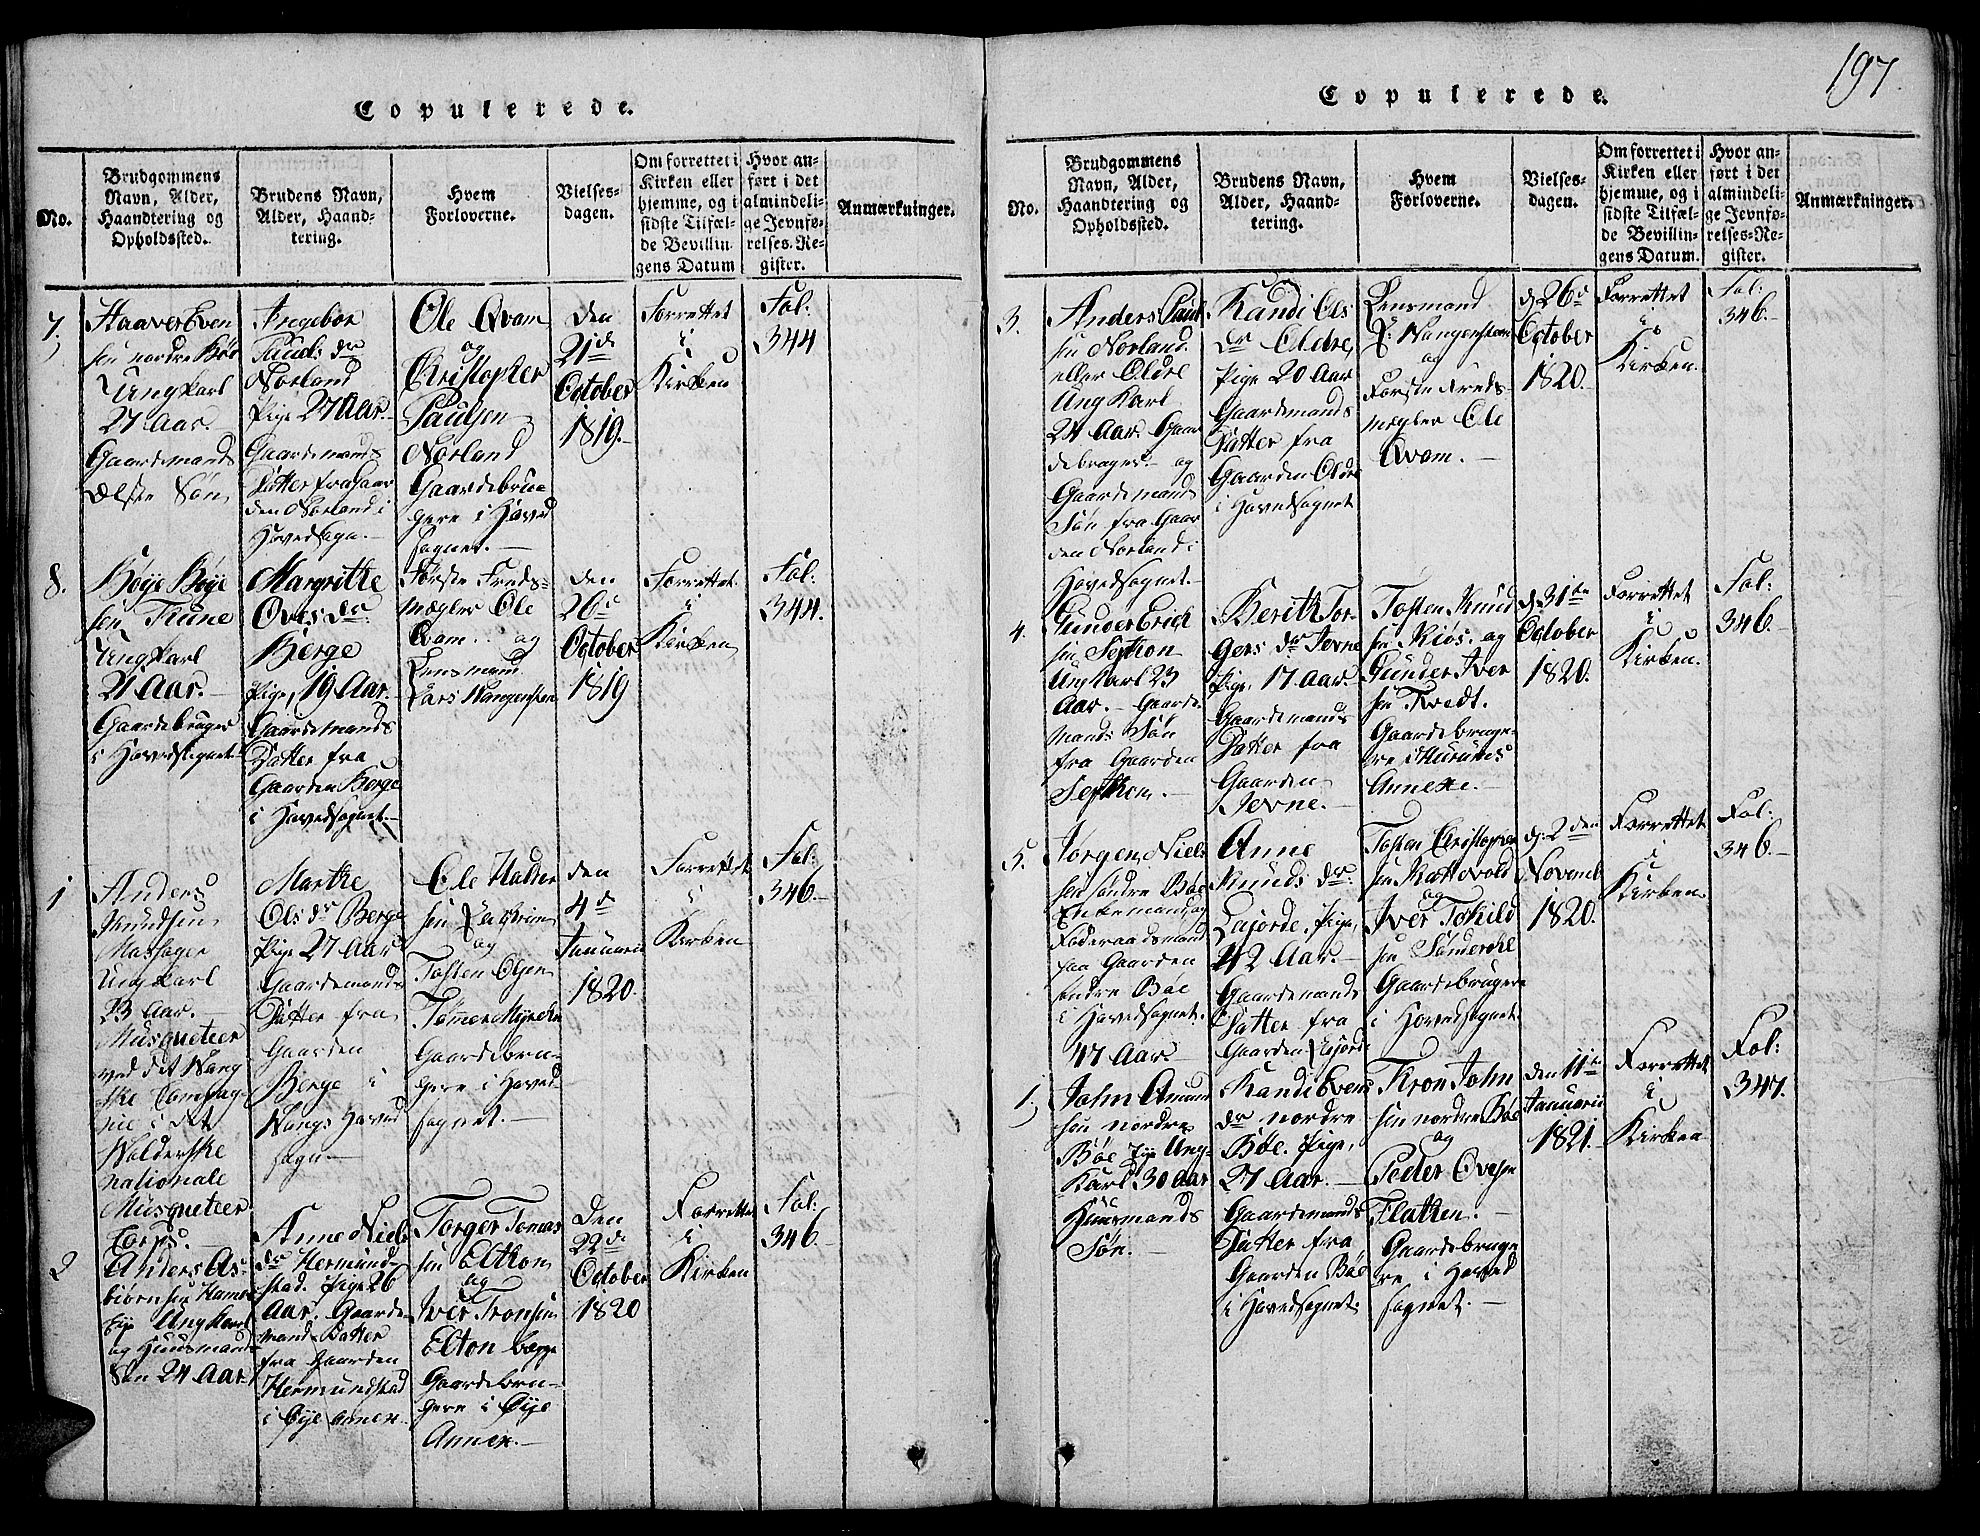 Copulerede.
No.
Brudgommens
Navn, Alder,
Haandtering og
Opholdssted.
Brudens Navn,
Alder, Haand-
tering.
Hvem
Forloverne.
Vielses-
dagen.
Om forrettet i
Kirken eller
hjemme, og i
sidste Tilfæl-
de Bevillin-
gens Datum
Hvor an-
ført i det
almindeli-
ge Jevnfø-
relses-Re-
gister.
Anmærkninger.
7.
Haaver Even
sen nordre Bøe
Ungkarl
27 Aar.
Gaardemands
Ælste Søn
Ingebor
Pauls dr
Norland
Pige 27 Aar.
Gaardemands
Datter fra Gaar
den Norland i
Hovedsogn.
Ole Qvam
og
Christopher
Paulsen
Norland
Gaardebru-
gere i Hoved
sognet.
Den
21de
October
1819.
Forrettet
i
Kirken
Fol:
344
8.
Bøye Bøye
sen Thune
Ungkarl
21 Aar.
Gaardebruger
i Hovedsognet
Margrethe
Oves dr
Berge
Pige, 19 Aar.
Gaardemands
Datter fra
Gaarden Berge
i Hovedsognet.
Første Freds-
Mægler Ole
Qvam og
Lensmand
Lars Wangensten
den
26de
October
1819
Forrettet
i
Kirken
Fol:
344.
1
Anders
Knudsen
Ungkarl
23 Aar.
Musqueteer
ved det Wang
ske Compag-
nie i det
Walderske
nationale
Musqueteer
Corps.
Marthe
Ols dr Berge
Pige 27 Aar
Gaardemands
Datter fra
Gaarden
Berge i
Wangs Hoved
sogn
Ole Haldor
sen
og
Tosten Olsen
Gaardebru-
gere i Hoved
sognet.
den
4de
Januarii
1820.
Forrettet
i
Kirken
Fol:
346.
2
Anders As-
biørnsen
Eye Ungkarl
og Huusmands
Søn 24 Aar
Anne Niels
dr Hermund-
stad. Pige 26
Aar. Gaarde-
mands Datter
fra Gaarden
Hermundstad
i Øye Annex.
Torger Tomas
sen Elthon
og
Iver Tronsen
Elton begge
Gaardebru-
gere i Øye
Annex.
Den
22de
October
1820
Forrettet
i
Kirken
Fol:
346.
197.
Copulerede.
No.
Brudgommens
Navn, Alder,
Haandtering og
Opholdssted.
Brudens Navn,
Alder, Haand-
tering.
Hvem
Forloverne.
Vielses-
dagen.
Om forrettet i
Kirken eller
hjemme, og i
sidste Tilfæl-
de Bevillin-
gens Datum.
Hvor an-
ført i det
almindeli-
ge Jevnfø-
relses-Re-
gister.
Anmærkninger.
3.
Anders Paul
sen Norland
eller Oldre
Ung Karl
24 Aar. Gaar
debruger og
Gaardemands
Søn fra Gaar
den Norland i
Hovedsognet.
Randi Ols
dr Oldre,
Pige 20 Aar
Gaardemands
Datter fra
Gaarden Oldre
i Hovedsognet
Lensmand
Wangensteen
og
Første Freds-
mægler Ole
Qvam.
d. 26de
October
1820.
Forrettet
i
Kirken.
Fol:
346.
4.
Gunder Erich
sen
Ungkarl 23
Aar. Gaarde-
mands Søn
fra Gaarden
Berith Tor-
gers dr Jevne
Pige, 17 Aar.
Gaardemands
Datter fra
Gaarden
Jevne.
Tosten Knud
sen Kiøs. og
Gunder Iver
sen Tvedt.
Gaardebruge-
re i Hurums
Annexe.
d. 31te
October
1820.
Forrettet
i
Kirken.
Fol:
346.
5.
Jørgen Niel
sen søndre Bøe
Enkemand, og
Føderaadsmand
paa Gaarden
søndre Bøe
i Hovedsognet.
47 Aar
Anne
Knuds dr.
Pige,
42 Aar.
Gaardemands
Datter fra
Gaarden
Tosten Christopher
sen Kattevold
og
Iver Tohild
sen
Gaardebrugere
i Hovedsognet.
d. 2den
Novemb
1820.
Forrettet
i
Kirken.
Fol:
346.
1.
John Amund
sen nordre
Bøe Eye Ung-
Karl 30 Aar
Huusmands
Søn.
Randi Evens
dr nordre
Bøe. Pige,
27 Aar.
Gaardemands
Datter fra
Gaarden Bøe
i Hovedsognet.
Tron John
sen nordre Bøe
og
Peder Ovesen
Flatten.
Gaardebruge
re i Hoved
sognet.
den 11te
Januarii
1821.
Forrettet
i
Kirken
Fol:
347.